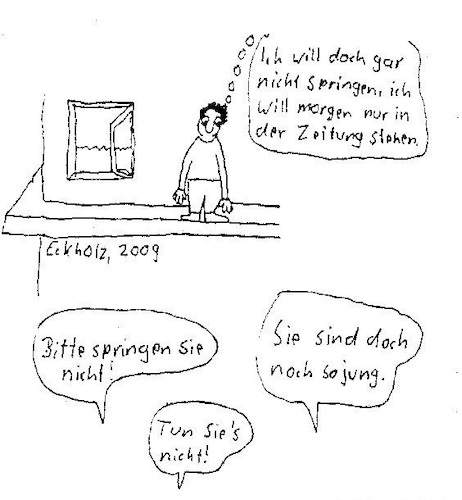 Ich will doch gar
nicht springen, ich
will morgen nur in
der Zeitung stehen.
Eckholz, 2009
Bitte springen Sie
nicht!
Sie sind doch
noch so jung.
Tun Sie's
nicht!